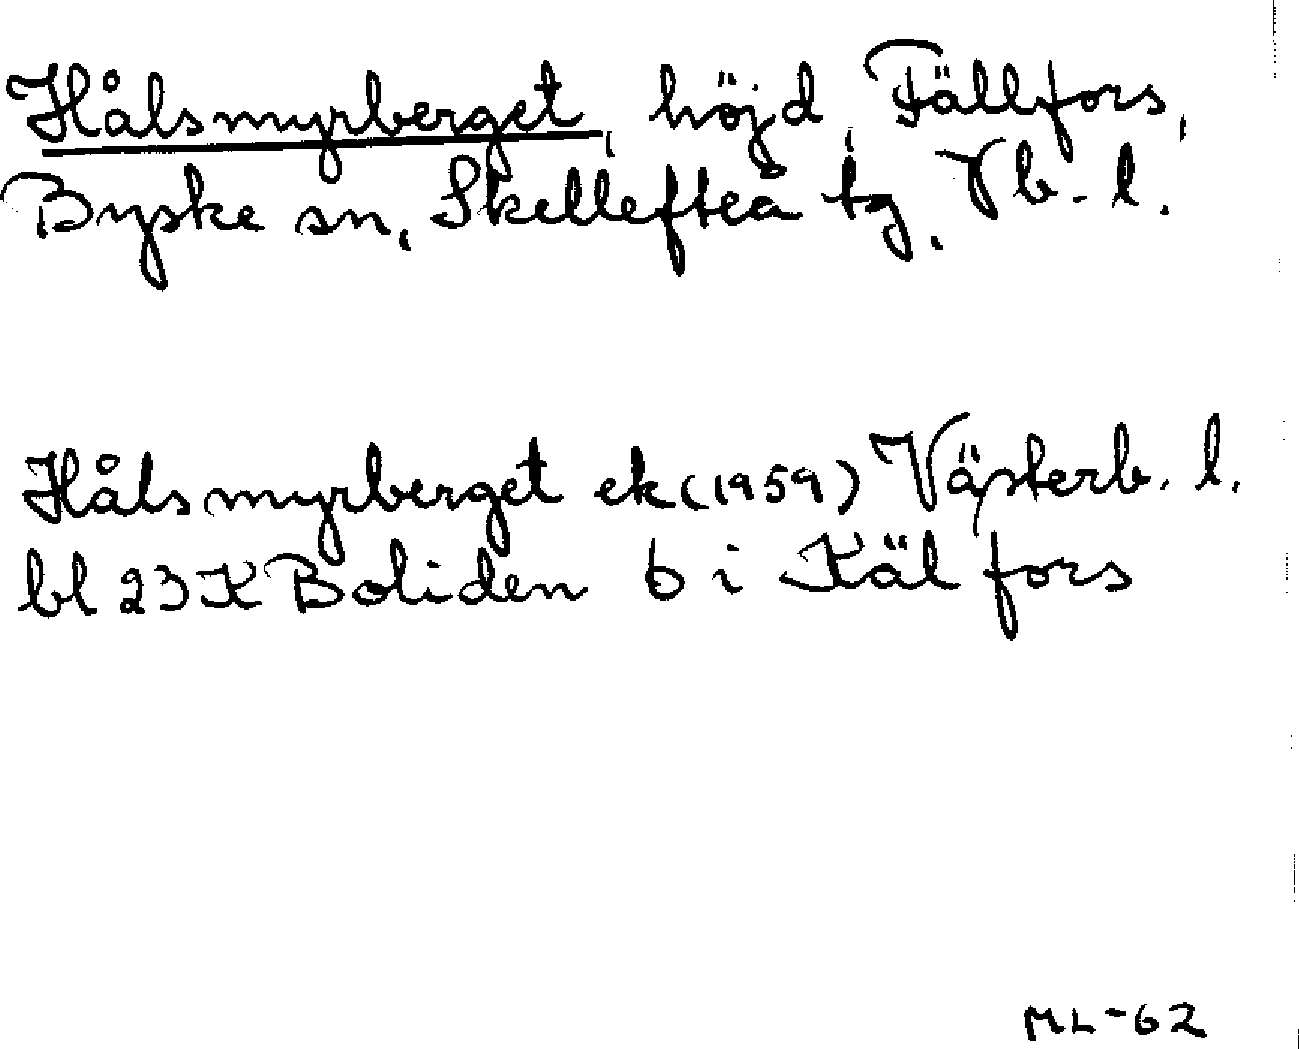 Hålsmyrberget, höjd, Fällfors,
Byske sn, Skellefteå tg, Vb-l.
Hålsmyrberget ek (1959) Västerb. l.
bl 23K Boliden 6 i Källfors
ML-62